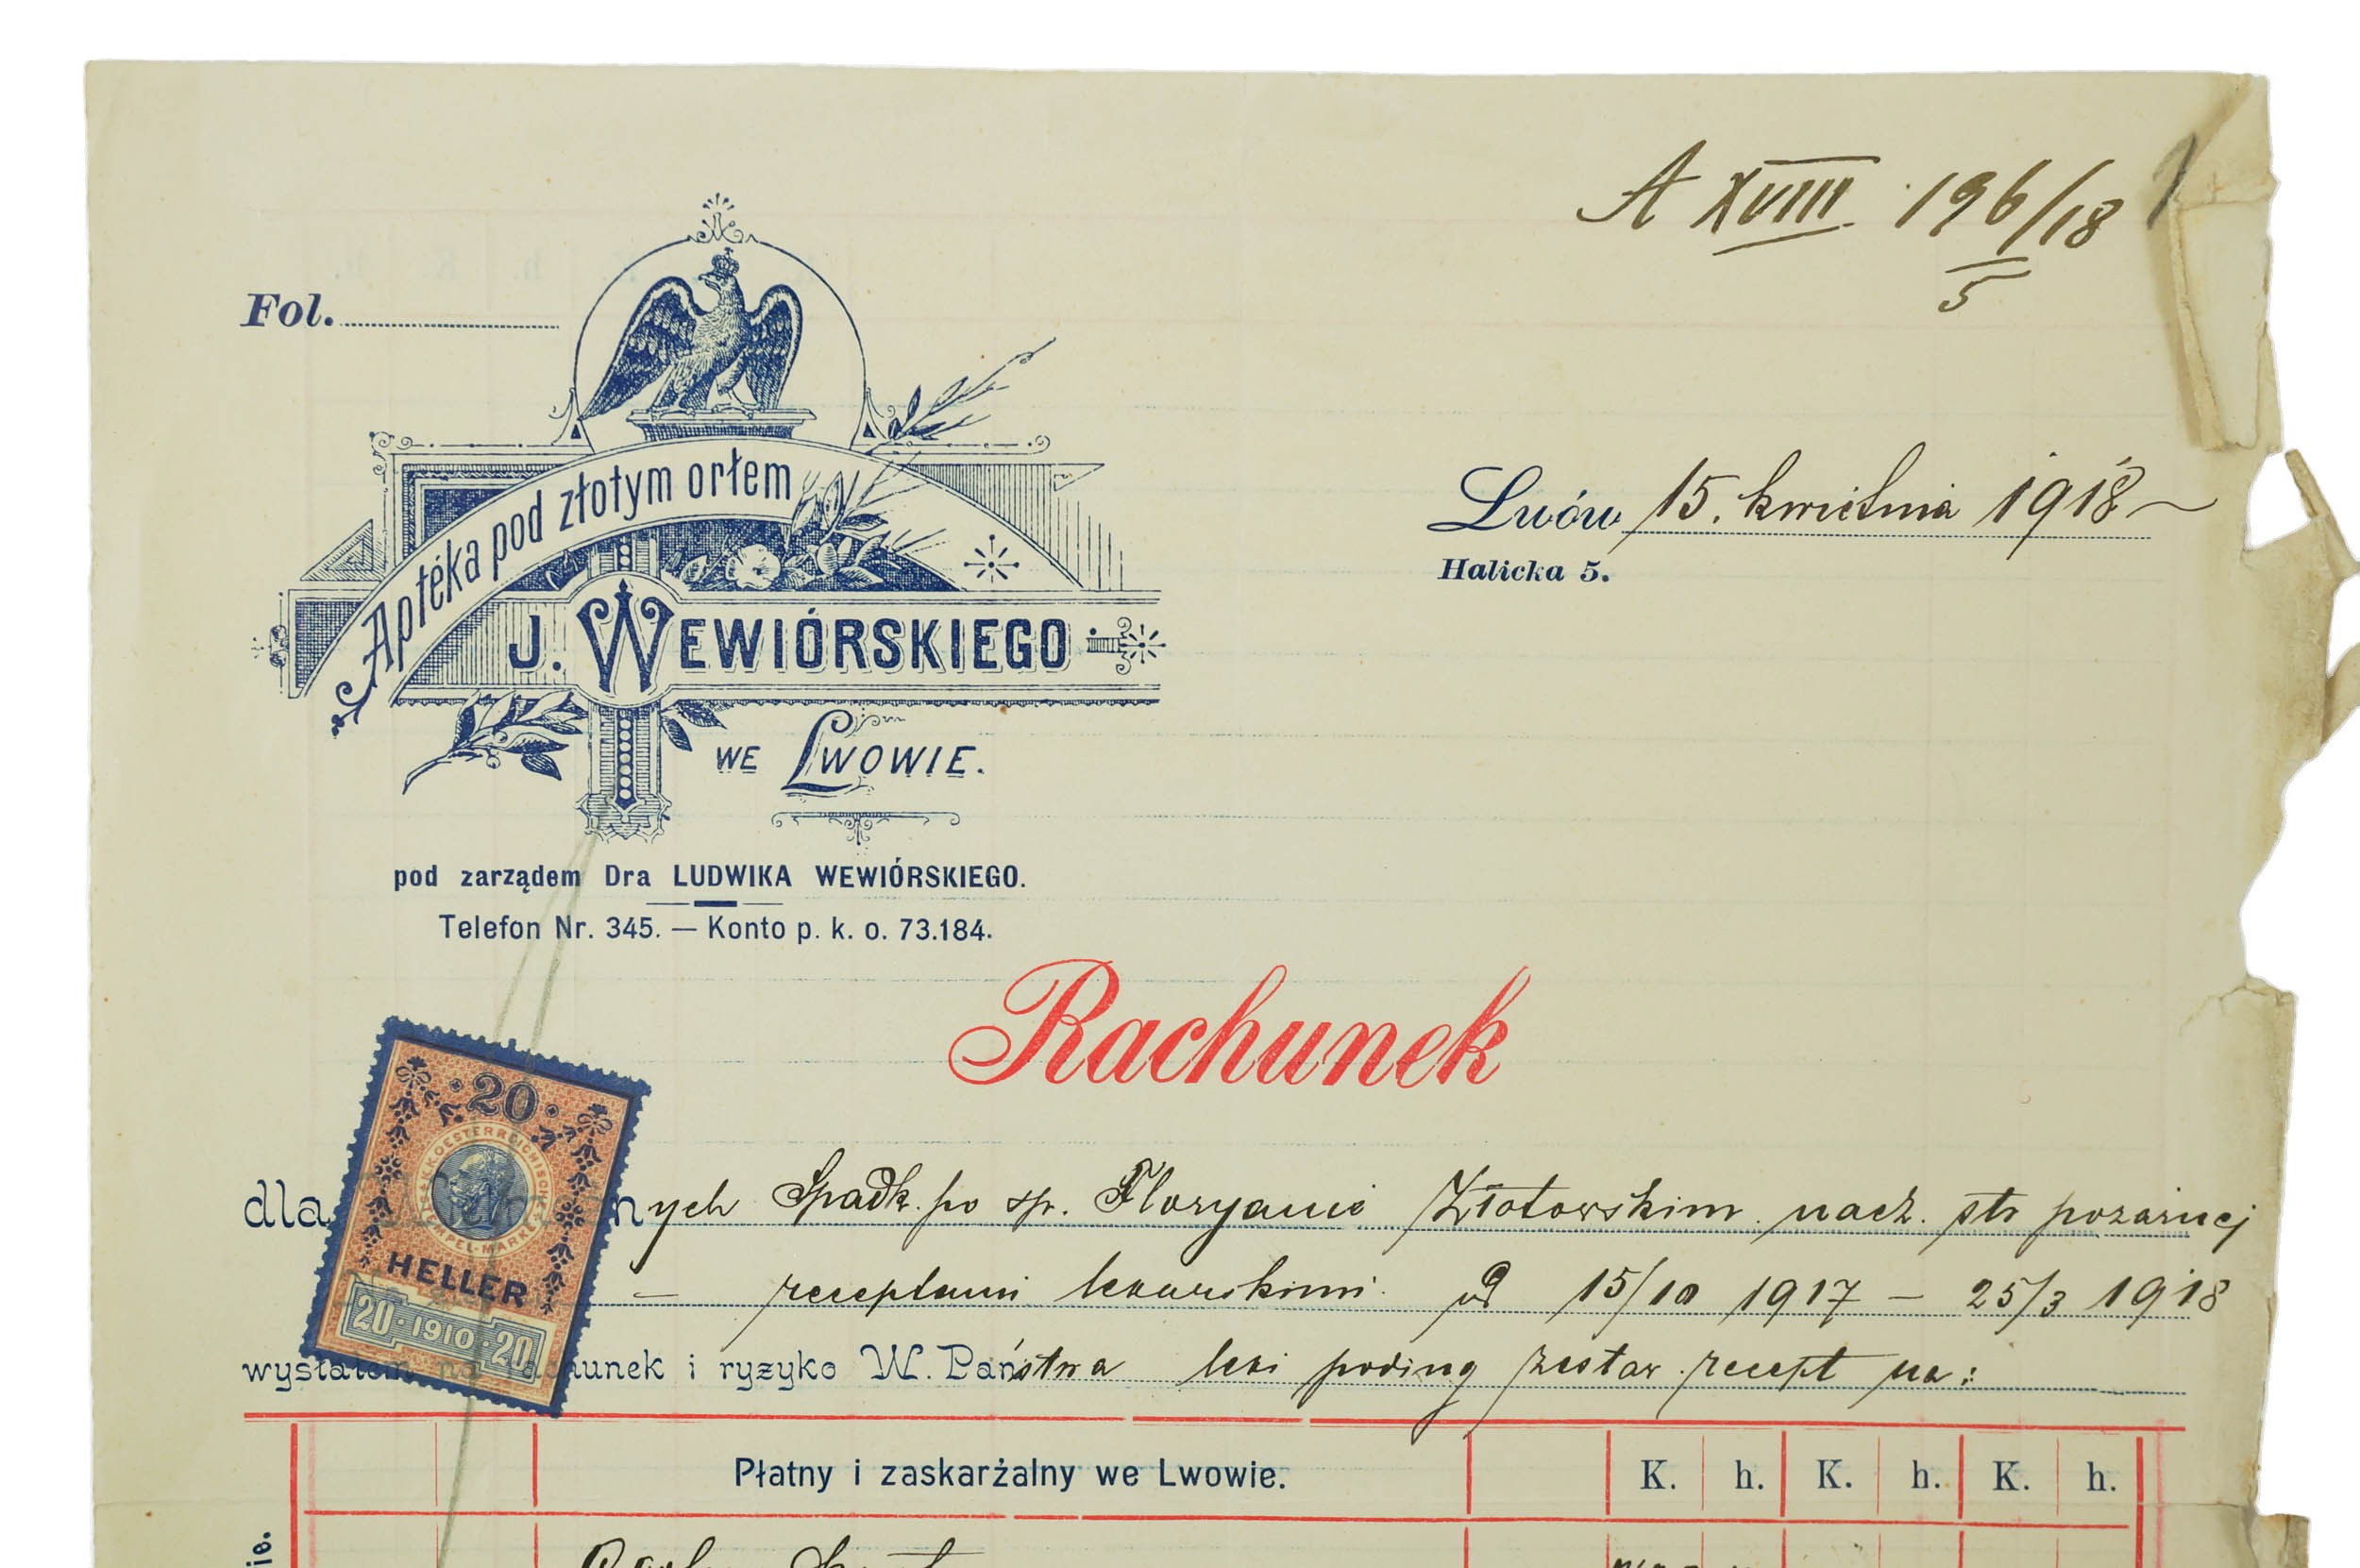 A XVIII 196/18
5
Fol.
Apteka pod złotym orłem
J. WEWIÓRSKIEGO
WE LWOWIE.
Lwów 15. kwietnia 1918
Halicka 5.
pod zarządem Dra LUDWIKA WEWIÓRSKIEGO.
Telefon Nr. 345. — Konto p. k. o. 73.184.
Rachunek
20
HELLER
20·1910·20
dla ych Spadk. po śp. Floryanie Złotowskim nacz. str pożarnej
— receptami lekarskimi od 15/10 1917 — 25/3 1918
wysłałem na rachunek i ryzyko W. Państwa leki podług zestaw. recept na:
Płatny i zaskarżalny we Lwowie.
K. h. K. h. K. h.